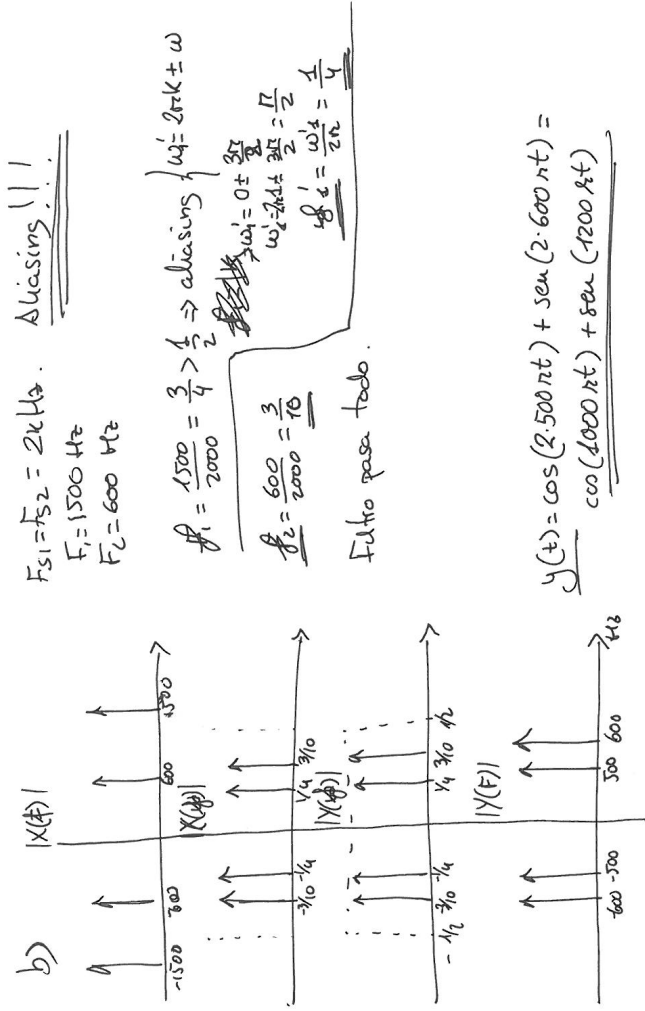 b)
|X(F)|
-1500
600
600
1500
|X(f)|
-3/10 -1/4
1/4 3/10
|Y(f)|
-1/2 -3/10 -1/4
1/4 3/10 1/2
|Y(F)|
-600 -500
500 600
Hz
Fs1=Fs2 = 2kHz. Aliasing!!!
F1=1500 Hz
F2=600 Hz
f1 = 1500/2000 = 3/4 > 1/2 => aliasing { ω1'= 2πk ± ω
→ω1'= 0 ± 3π/2
ω1'=2π1 ± 3π/2 = π/2
f1' = ω1'/2π = 1/4
f2 = 600/2000 = 3/10
Filtro pasa todo.
y(t) = cos(2·500πt) + sen(2·600πt) =
cos(1000πt) + sen(1200πt)